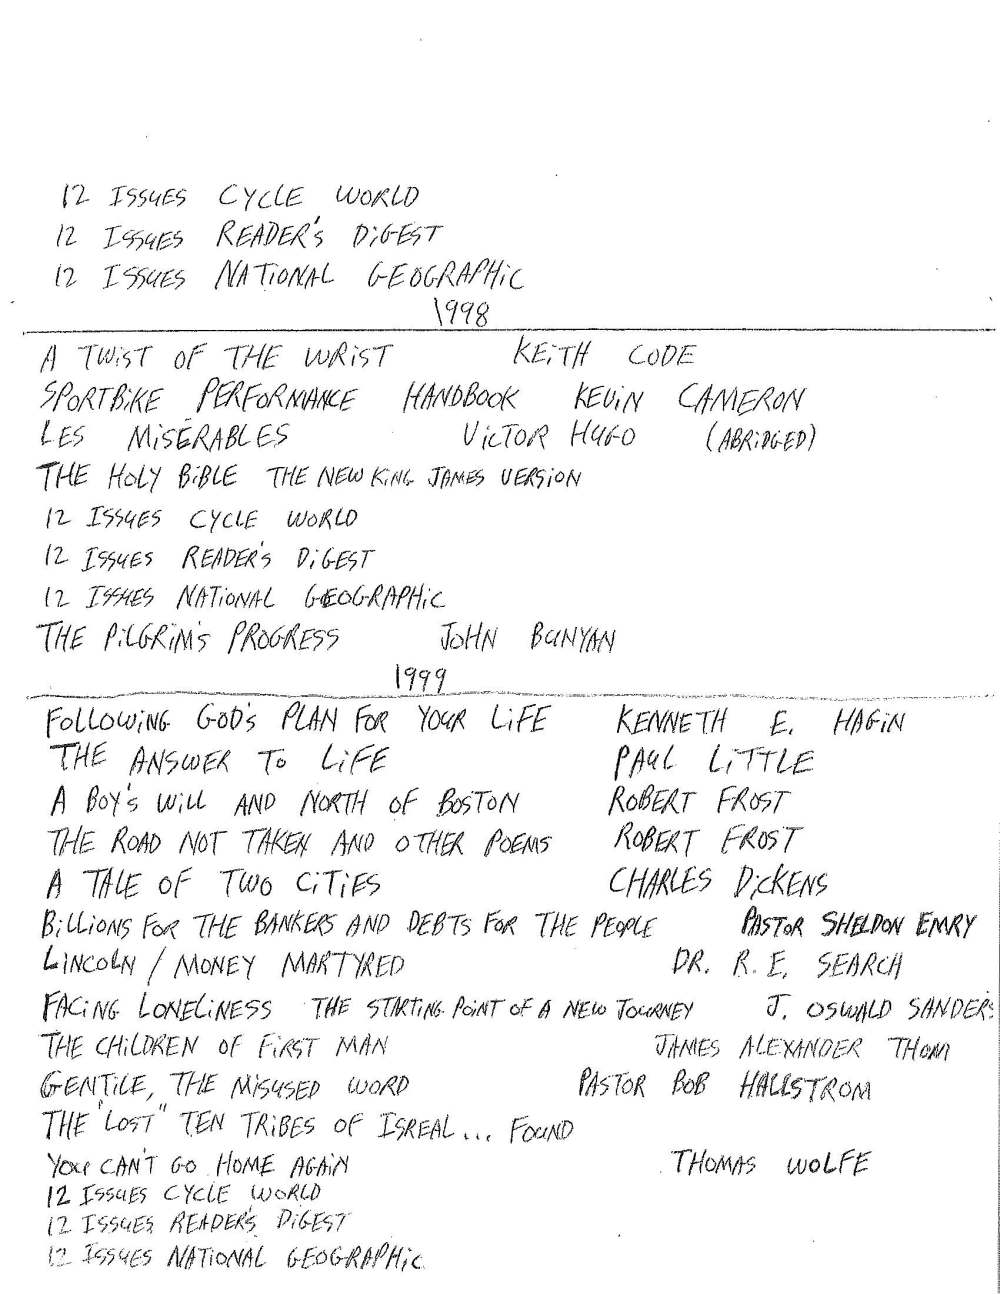 12 ISSUES CYCLE WORLD
12 ISSUES READER'S DIGEST
12 ISSUES NATIONAL GEOGRAPHIC
1998
A TWIST OF THE WRIST KEITH CODE
SPORTBIKE PERFORMANCE HANDBOOK KEVIN CAMERON
LES MISÉRABLES VICTOR HUGO (ABRIDGED)
THE HOLY BIBLE THE NEW KING JAMES VERSION
12 ISSUES CYCLE WORLD
12 ISSUES READER'S DIGEST
12 ISSUES NATIONAL GEOGRAPHIC
THE PILGRIM'S PROGRESS JOHN BUNYAN
1999
FOLLOWING GOD'S PLAN FOR YOUR LIFE KENNETH E. HAGIN
THE ANSWER TO LIFE PAUL LITTLE
A BOY'S WILL AND NORTH OF BOSTON ROBERT FROST
THE ROAD NOT TAKEN AND OTHER POEMS ROBERT FROST
A TALE OF TWO CITIES CHARLES DICKENS
BILLIONS FOR THE BANKERS AND DEBTS FOR THE PEOPLE PASTOR SHELDON EMRY
LINCOLN / MONEY MARTYRED DR. R. E. SEARCH
FACING LONELINESS THE STARTING POINT OF A NEW JOURNEY J. OSWALD SANDERS
THE CHILDREN OF FIRST MAN JAMES ALEXANDER THOM
GENTILE, THE MISUSED WORD PASTOR BOB HALLSTROM
THE "LOST" TEN TRIBES OF ISREAL... FOUND
YOU CAN'T GO HOME AGAIN THOMAS WOLFE
12 ISSUES CYCLE WORLD
12 ISSUES READER'S DIGEST
12 ISSUES NATIONAL GEOGRAPHIC